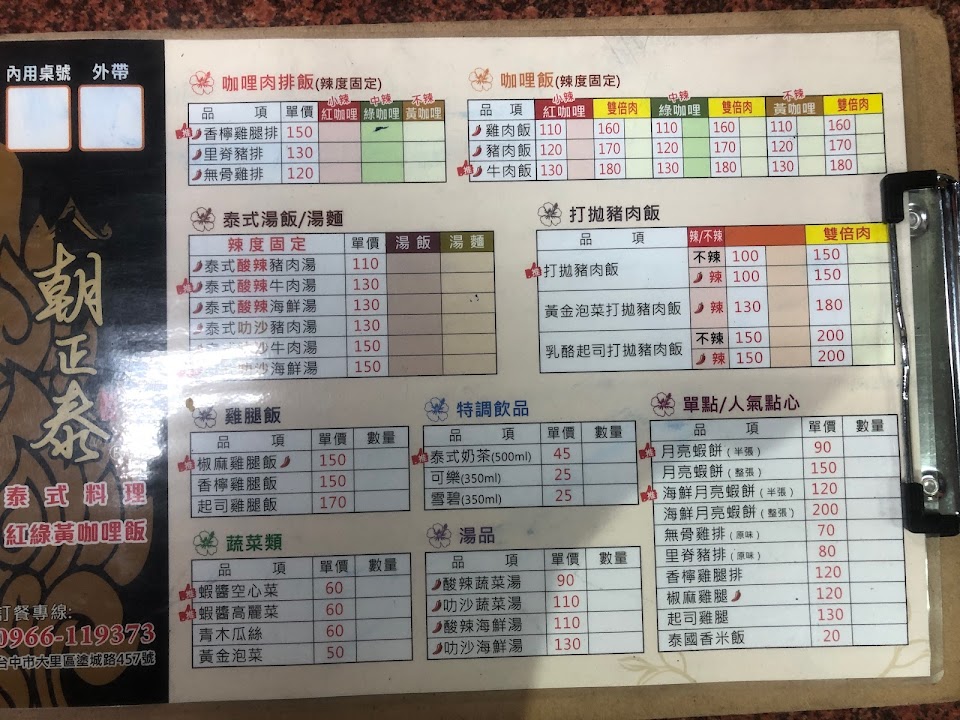 內用桌號 外帶
朝正泰
泰式料理
紅綠黃咖哩飯
訂餐專線:
0966-119373
台中市大里區塗城路457號
咖哩肉排飯(辣度固定)
小辣 中辣 不辣
品 項 單價 紅咖哩 綠咖哩 黃咖哩
香檸雞腿排 150
里脊豬排 130
無骨雞排 120
咖哩飯(辣度固定)
小辣 中辣 不辣
品 項 紅咖哩 雙倍肉 綠咖哩 雙倍肉 黃咖哩 雙倍肉
雞肉飯 110 160 110 160 110 160
豬肉飯 120 170 120 170 120 170
牛肉飯 130 180 130 180 130 180
泰式湯飯/湯麵
辣度固定 單價 湯飯 湯麵
泰式酸辣豬肉湯 110
泰式酸辣牛肉湯 130
泰式酸辣海鮮湯 130
泰式叻沙豬肉湯 130
沙牛肉湯 150
沙海鮮湯 150
打拋豬肉飯
品 項 辣/不辣 雙倍肉
打拋豬肉飯 不辣 100 150
辣 100 150
黃金泡菜打拋豬肉飯 辣 130 180
乳酪起司打拋豬肉飯 不辣 150 200
辣 150 200
雞腿飯
品 項 單價 數量
椒麻雞腿飯 150
香檸雞腿飯 150
起司雞腿飯 170
特調飲品
品 項 單價 數量
泰式奶茶(500ml) 45
可樂(350ml) 25
雪碧(350ml) 25
單點/人氣點心
品 項 單價 數量
月亮蝦餅(半張) 90
月亮蝦餅(整張) 150
海鮮月亮蝦餅(半張) 120
海鮮月亮蝦餅(整張) 200
無骨雞排(原味) 70
里脊豬排(原味) 80
香檸雞腿排 120
椒麻雞腿 120
起司雞腿 130
泰國香米飯 20
蔬菜類
品 項 單價 數量
蝦醬空心菜 60
蝦醬高麗菜 60
青木瓜絲 60
黃金泡菜 50
湯品
品 項 單價 數量
酸辣蔬菜湯 90
叻沙蔬菜湯 110
酸辣海鮮湯 110
叻沙海鮮湯 130